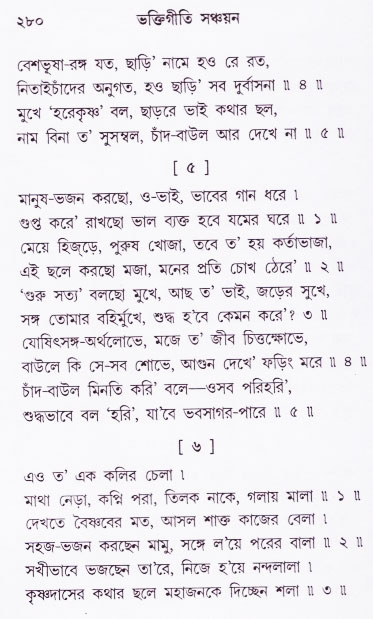 ২৮০ ভক্তিগীতি সঞ্চয়ন
বেশভূষা-রঙ্গ যত, ছাড়ি’ নামে হও রে রত,
নিতাইচাঁদের অনুগত, হও ছাড়ি’ সব দুর্বাসনা ॥ ৪ ॥
মুখে ‘হরেকৃষ্ণ’ বল, ছাড়রে ভাই কথার ছল,
নাম বিনা ত’ সুসম্বল, চাঁদ-বাউল আর দেখে না ॥ ৫ ॥
[ ৫ ]
মানুষ-ভজন করছো, ও-ভাই, ভাবের গান ধরে ।
গুপ্ত করে’ রাখছো ভাল ব্যক্ত হবে যমের ঘরে ॥ ১ ॥
মেয়ে হিজ্ড়ে, পুরুষ খোজা, তবে ত’ হয় কর্তাভাজা,
এই ছলে করছো মজা, মনের প্রতি চোখ ঠেরে’ ॥ ২ ॥
‘গুরু সত্য’ বলছো মুখে, আছ ত’ ভাই, জড়ের সুখে,
সঙ্গ তোমার বহির্মুখে, শুদ্ধ হ’বে কেমন করে’? ৩ ॥
যোষিৎসঙ্গ-অর্থলোভে, মজে ত’ জীব চিত্তক্ষোভে,
বাউলে কি সে-সব শোভে, আগুন দেখে’ ফড়িং মরে ॥ ৪ ॥
চাঁদ-বাউল মিনতি করি’ বলে—ওসব পরিহরি’,
শুদ্ধভাবে বল ‘হরি’, যা’বে ভবসাগর-পারে ॥ ৫ ॥
[ ৬ ]
এও ত’ এক কলির চেলা ।
মাথা নেড়া, কপ্নি পরা, তিলক নাকে, গলায় মালা ॥ ১ ॥
দেখতে বৈষ্ণবের মত, আসল শাক্ত কাজের বেলা ।
সহজ-ভজন করছেন মামু, সঙ্গে ল’য়ে পরের বালা ॥ ২ ॥
সখীভাবে ভজছেন তা’রে, নিজে হ’য়ে নন্দলালা ।
কৃষ্ণদাসের কথার ছলে মহাজনকে দিচ্ছেন শলা ॥ ৩ ॥